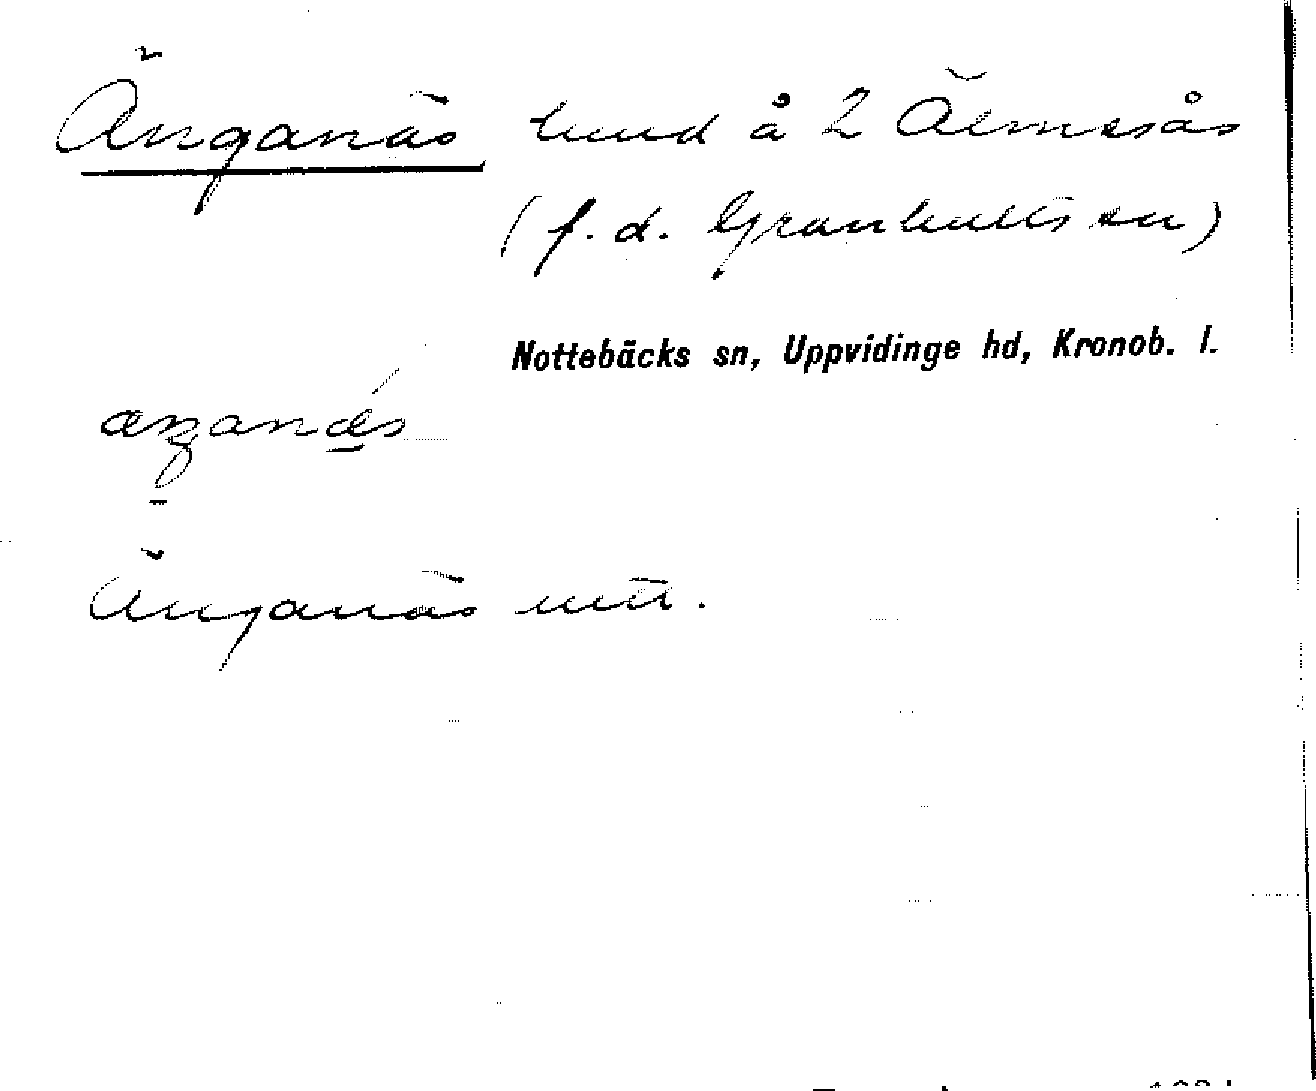 Änganäs hmd å 2 Älmesås
(f.d. Granhults sn)
Nottebäcks sn, Uppvidinge hd, Kronob. l.
Änganäs